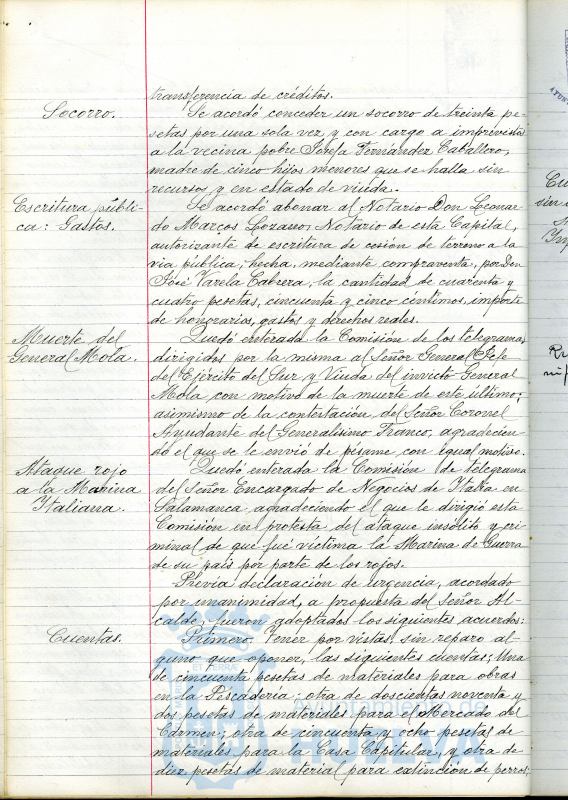 transferencia de créditos.
Socorro.
Se acordó conceder un socorro de treinta pe-
setas por una sola vez y con cargo a imprevistos
a la vecina pobre Josefa Fernández Caballero,
madre de cinco hijos menores que se halla sin
recursos y en estado de viuda.
Escritura públi-
ca: Gastos.
Se acordó abonar al Notario Don Leonar-
do Marcos Lozano, Notario de esta Capital,
autorizante de escritura de cesión de terreno a la
vía pública, hecha, mediante compraventa, por Don
José Varela Cabrera, la cantidad de cuarenta y
cuatro pesetas, cincuenta y cinco céntimos, importe
de honorarios, gastos y derechos reales.
Muerte del
General Mola.
Quedó enterada la Comisión de los telegramas
dirigidos por la misma al Señor General Jefe
del Ejército del Sur y Viuda del invicto General
Mola con motivo de la muerte de este último;
asimismo de la contestación del Señor Coronel
Ayudante del Generalísimo Franco, agradecien-
do el que se le envió de pésame con igual motivo.
Ataque rojo
a la Marina
Italiana.
Quedó enterada la Comisión de telegrama
del Señor Encargado de Negocios de Italia en
Salamanca agradeciendo el que le dirigió esta
Comisión en protesta del ataque insólito y cri-
minal de que fué víctima la Marina de Guerra
de su país por parte de los rojos.
Previa declaración de urgencia, acordado
por unanimidad, a propuesta del Señor Al-
calde, fueron adoptados los siguientes acuerdos:
Cuentas.
Primero. Tener por vistas, sin reparo al-
guno que oponer, las siguientes cuentas; Una
de cincuenta pesetas de materiales para obras
en la Pescadería; otra de doscientas noventa y
dos pesetas de materiales para el Mercado del
Carmen; otra de cincuenta y ocho pesetas de
materiales para la Casa Capitular, y otra de
diez pesetas de material para extinción de perros;
Ayuntamiento de
HUELVA